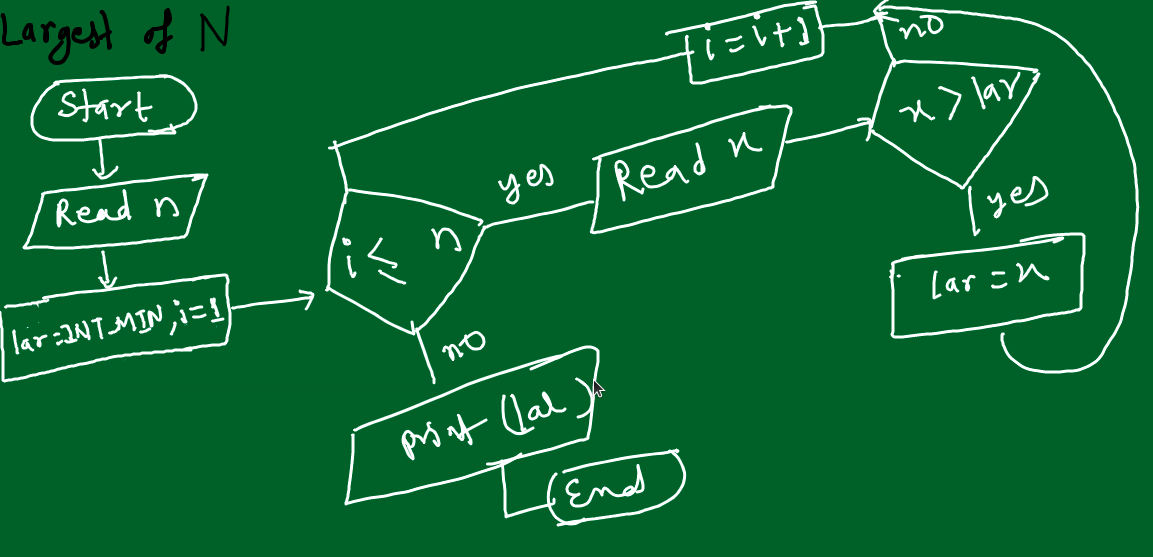 Largest of N
Start
Read n
lar=INT-MIN, i=1
i ≤ n
yes
Read x
x > lar
yes
lar = x
no
i = i+1
no
print (lar)
End